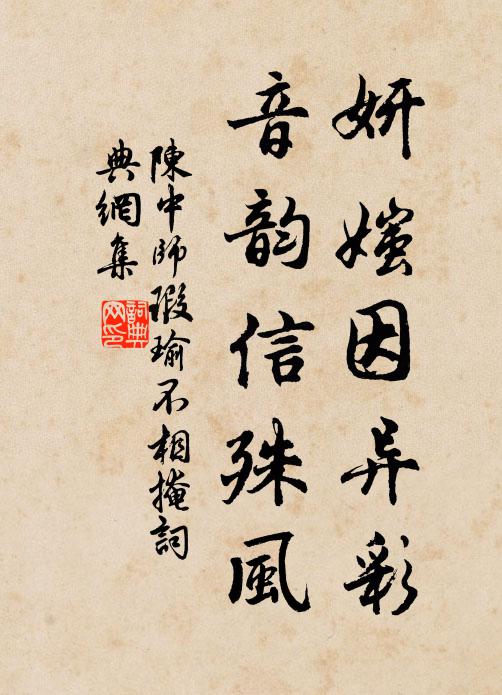 妍媸因异彩
音韵信殊風
陳中師瑕瑜不相掩詞
典網集
詞典網印